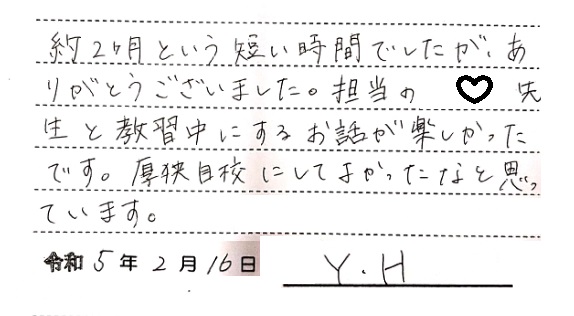 約2ヶ月という短い時間でしたが、あ
りがとうございました。担当の ♡ 先
生と教習中にするお話が楽しかった
です。厚狭自校にしてよかったなと思っ
ています。
令和5年2月16日 Y.H